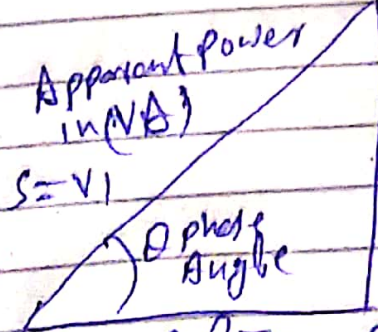 Apparent Power
in (VA)
S = VI
θ phase
Angle